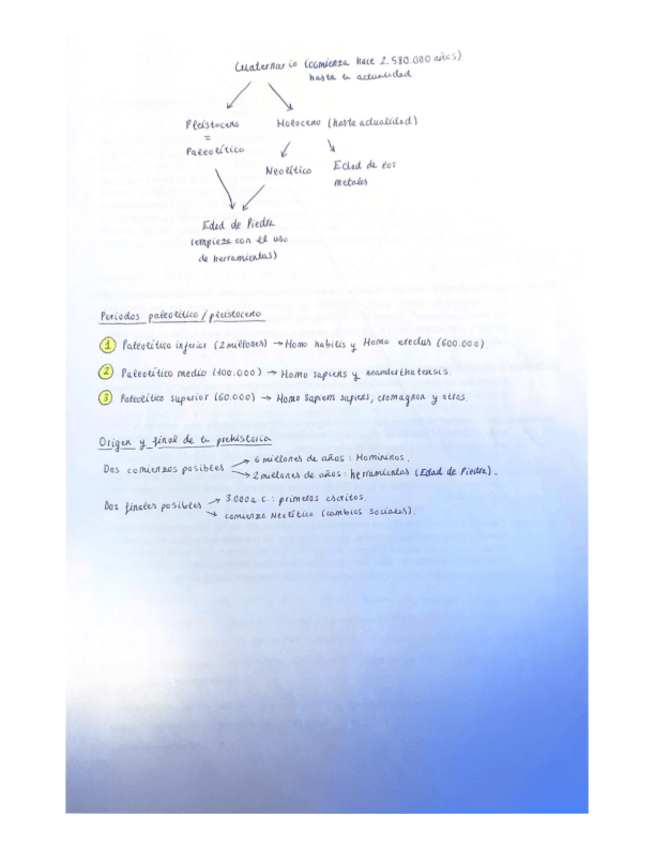 Cuaternario (comienza hace 2.580.000 años)
hasta la actualidad
Pleistoceno
=
Paleolítico
Holoceno (hasta actualidad)
Neolítico
Edad de los
metales
Edad de Piedra
(empieza con el uso
de herramientas)
Periodos paleolítico/pleistoceno
1 Paleolítico inferior (2 millones) → Homo habilis y Homo erectus (600.000).
2 Paleolítico medio (100.000) → Homo sapiens y neanderthalensis.
3 Paleolítico superior (60.000) → Homo sapiens sapiens, cromagnon y otros.
Origen y final de la prehistoria
Dos comienzos posibles
→ 6 millones de años: Homininos.
→ 2 millones de años: herramientas (Edad de Piedra).
Dos finales posibles
→ 3.000 a.C.: primeros escritos.
→ comienzo Neolítico (cambios sociales).